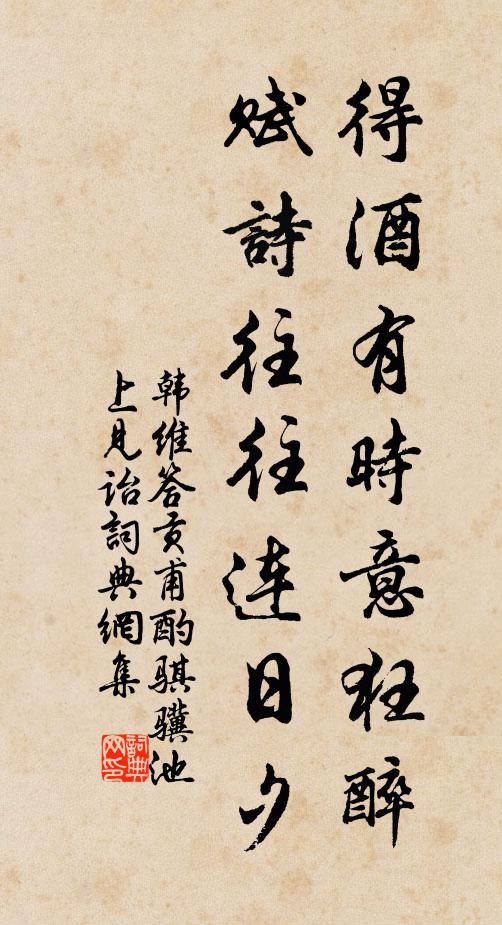 得酒有時意狂醉
賦詩往往連日夕
韩維答贡甫酌骐驥池
上見詒詞典網集
詞典
网印